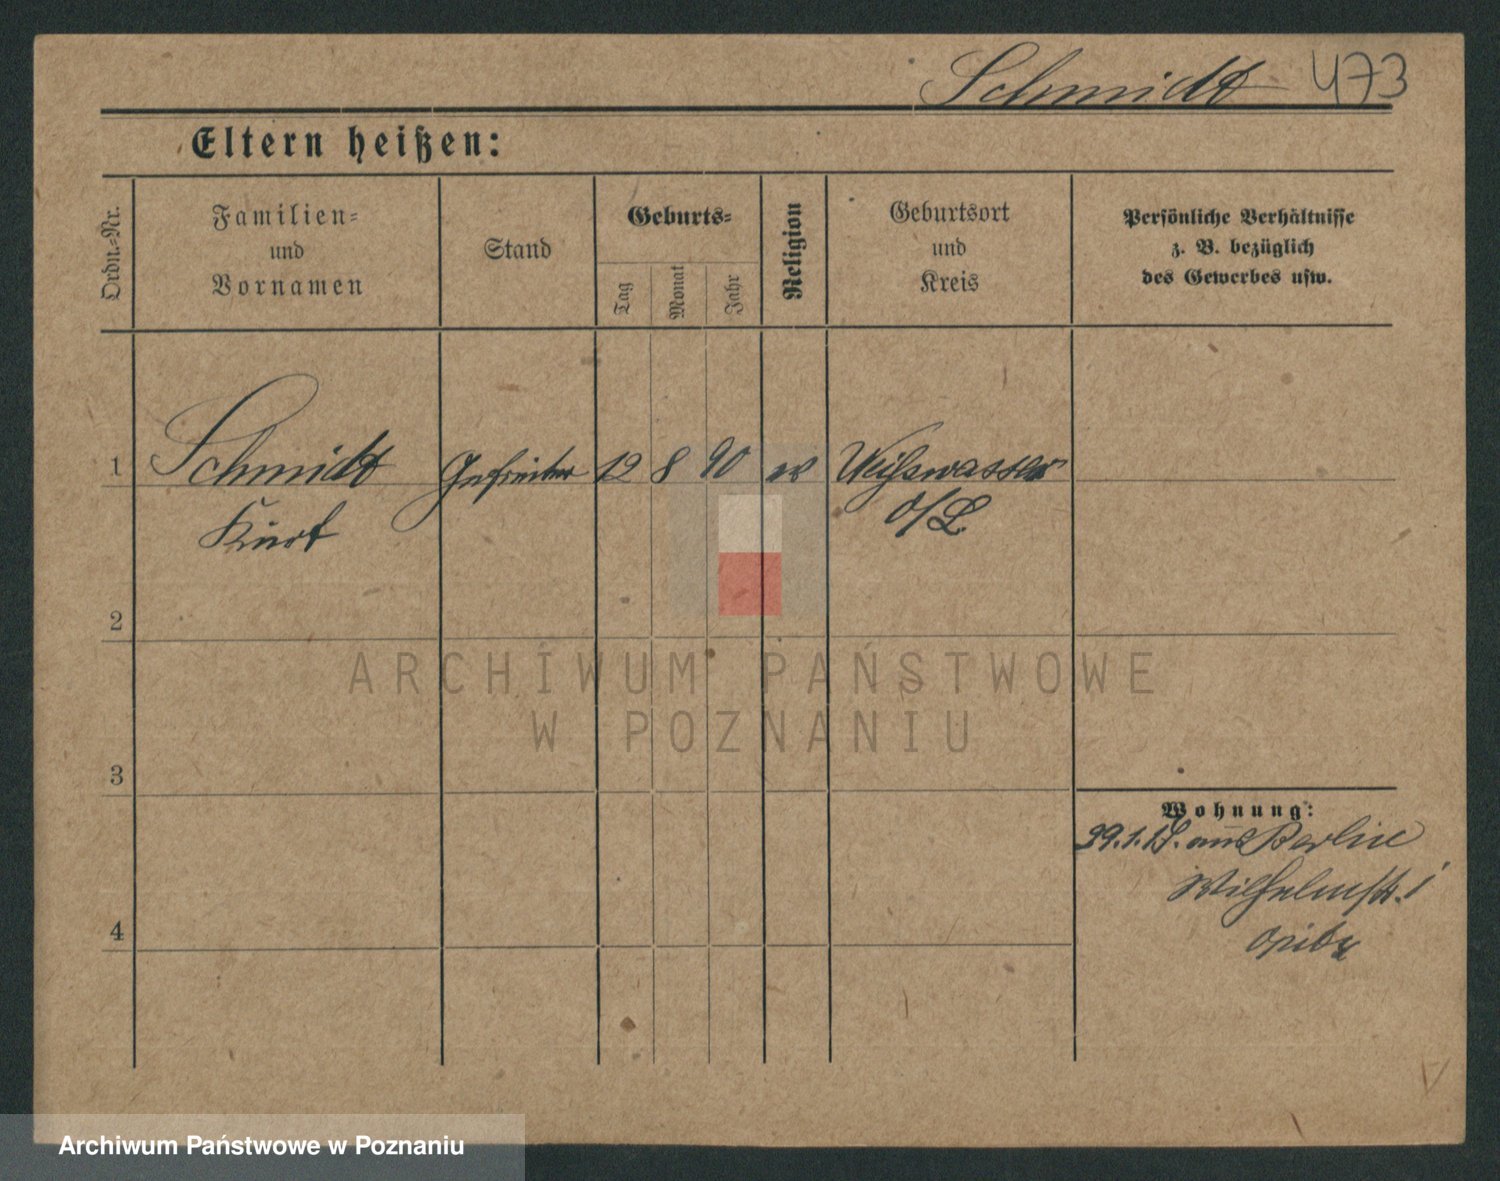 Schmidt 473
Eltern heißen:
Ordn.-Nr.
Familien-
und
Vornamen
Stand
Geburts-
Tag
Monat
Jahr
Religion
Geburtsort
und
Kreis
Persönliche Verhältnisse
z. B. bezüglich
des Gewerbes usw.
1 Schmidt Gefreiter 12 8 90 ev Weißwasser
Kurt O/L
2
3
4
Wohnung:
29.1.18. aus Berlin
Wilhelmstr. 1
Opitz
ARCHIWUM PAŃSTWOWE
W POZNANIU
Archiwum Państwowe w Poznaniu